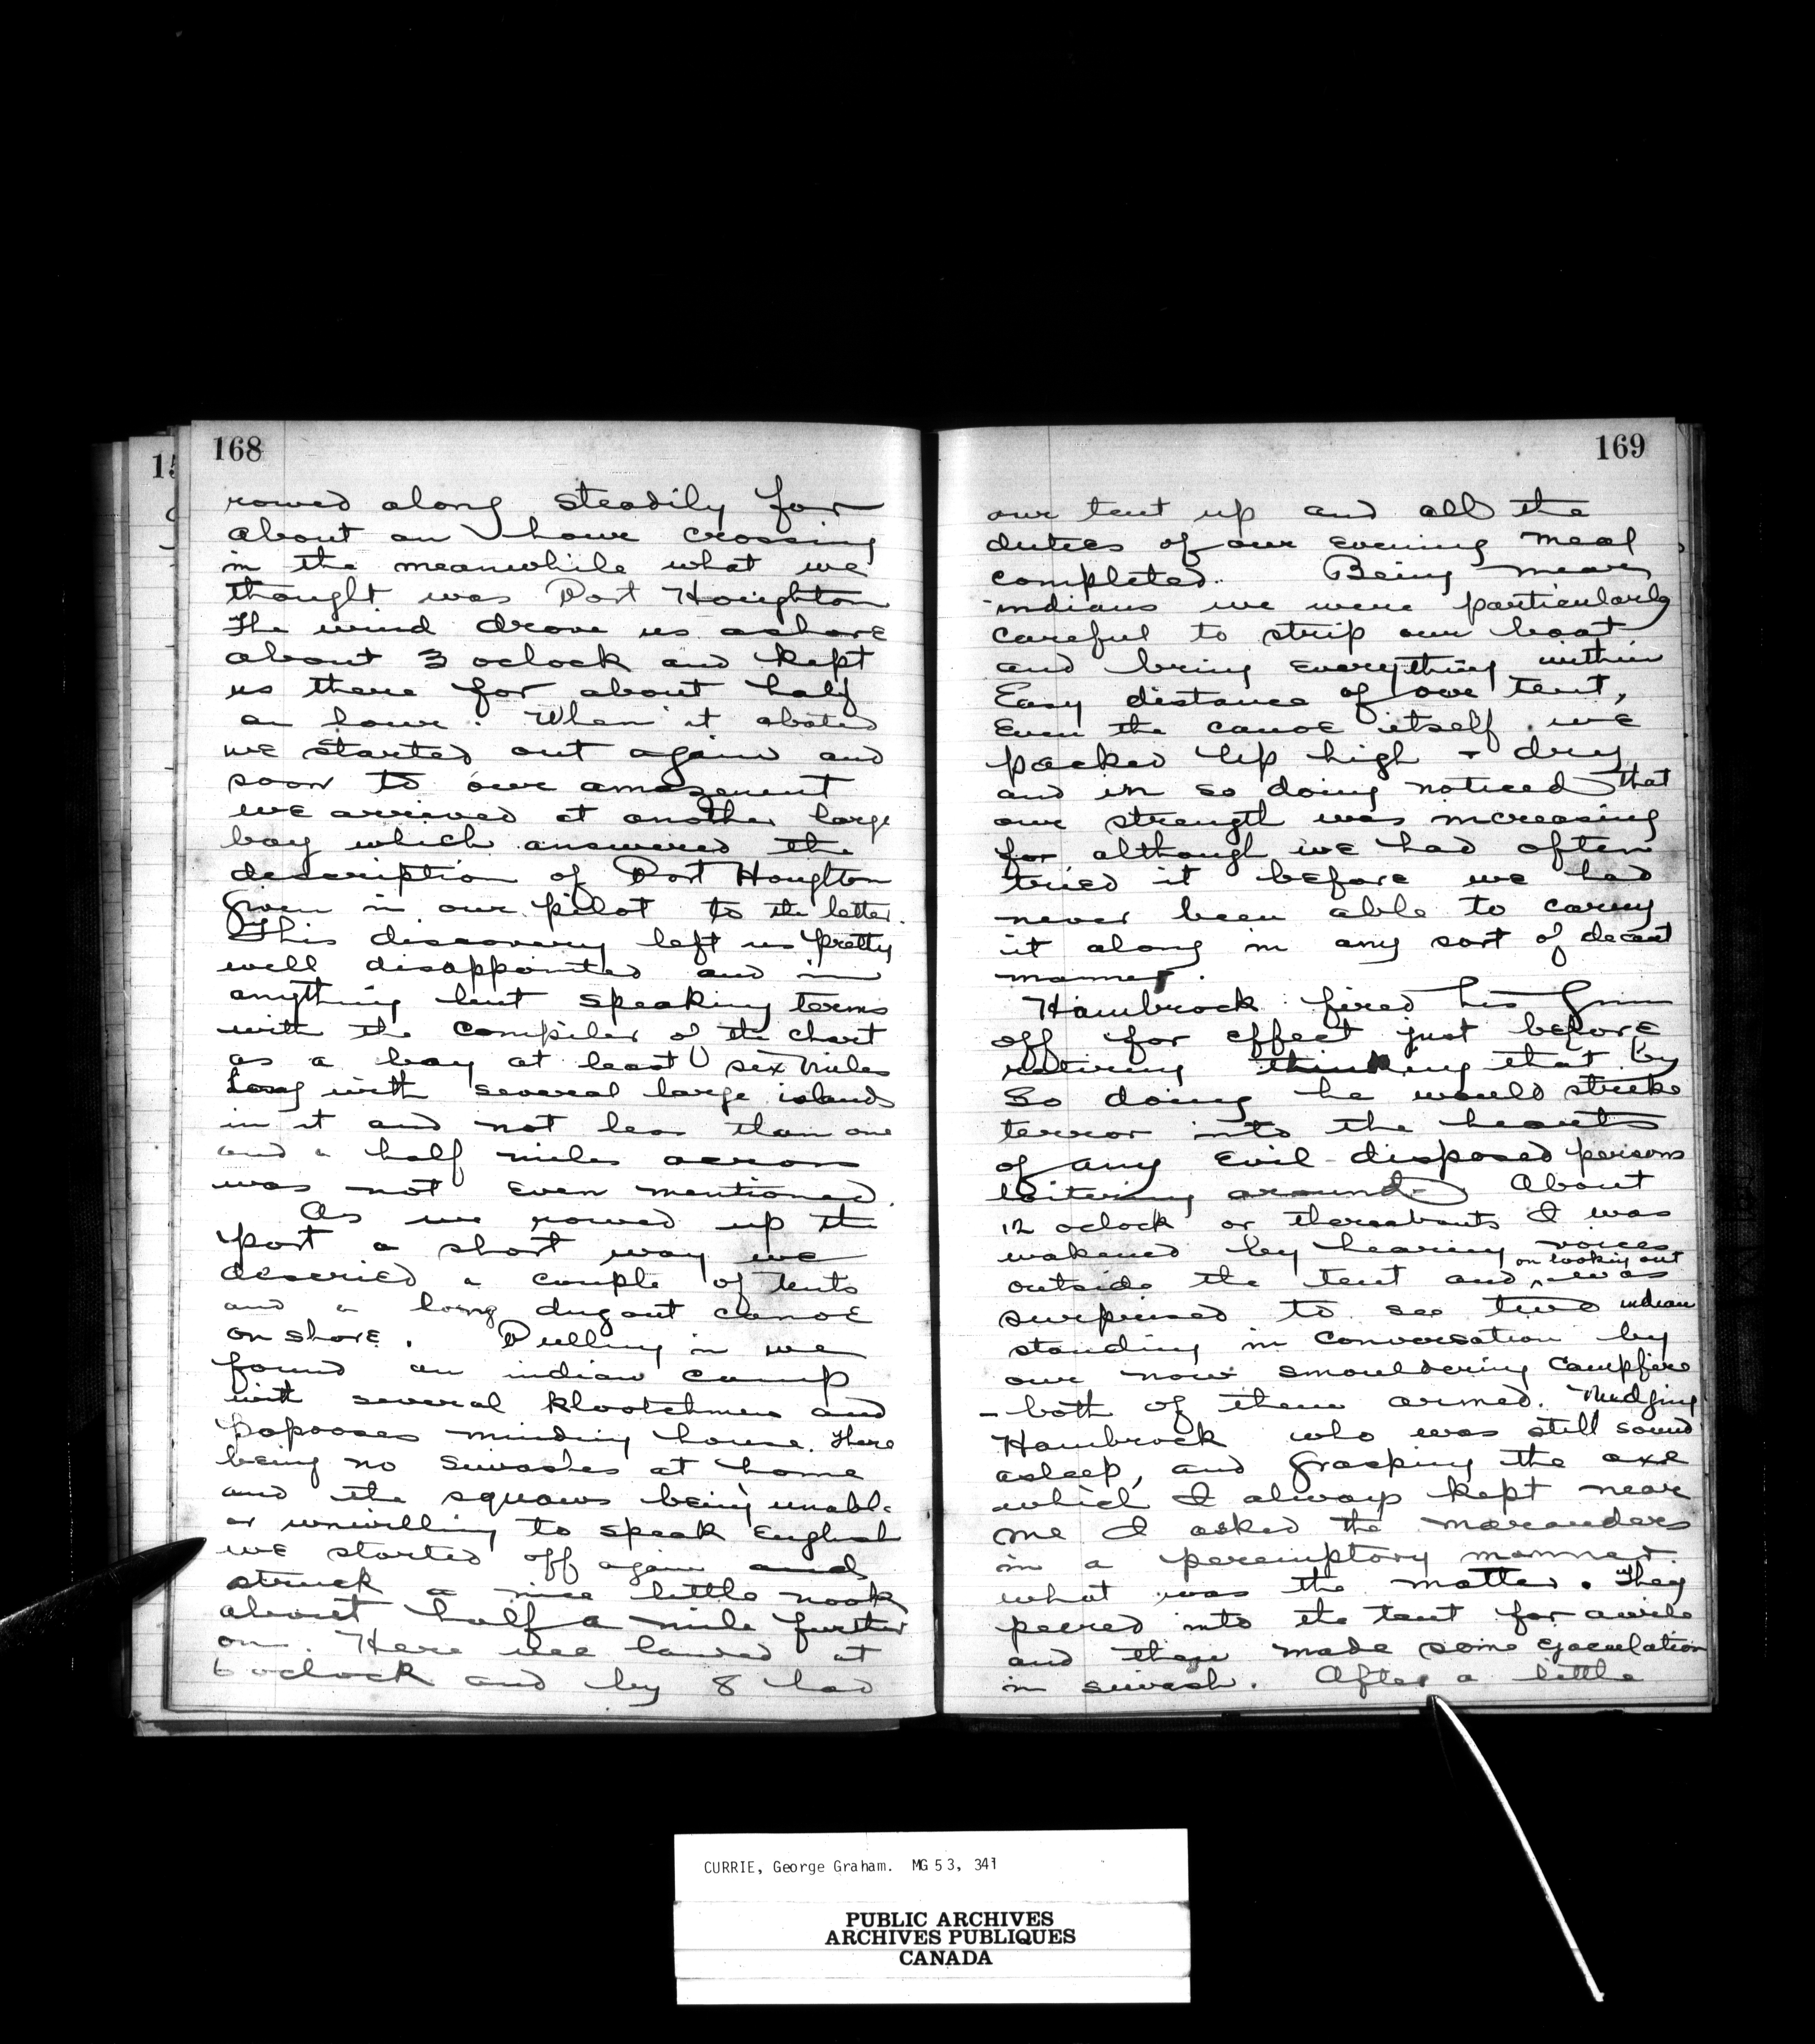 168
rowed along steadily for
about an hour crossing
in the meanwhile what we
thought was Port Houghton
The wind drove us ashore
about 3 oclock and kept
us there for about half
an hour. When it abated
we started out again and
soon to our amazement
we arrived at another large
bay which answered the
description of Port Houghton
given in our pilot to the letter.
This discovery left us pretty
well disappointed and in
anything but speaking terms
with the compiler of the chart
as a bay at least six miles
long with several large islands
in it and not less than one
and a half miles across
was not even mentioned.
As we rowed up the
port a short way we
descried a couple of tents
and a long dugout canoe
on shore. Pulling in we
found an indian camp
with several klootchmen and
papooses minding house. There
being no siwashes at home
and the squaws being unable
or unwilling to speak English
we started off again and
struck a nice little nook
about half a mile further
on. Here we landed at
6 oclock and by 8 had
169
our tent up and all the
duties of our evening meal
completed. Being near
indians we were particularly
careful to strip our boat
and bring everything within
Easy distance of our tent,
Even the canoe itself we
packed up high + dry
and in so doing noticed that
our strength was increasing
for although we had often
tried it before we had
never been able to carry
it along in any sort of decent
manner.
Hambrock fired his gun
off for effect just before
retiring thinking that by
So doing he would strike
terror into the hearts
of any evil-disposed persons
loitering around. About
12 oclock or thereabouts I was
wakened by hearing voices
on looking out
outside the tent and was
surprised to see two indian
standing in conversation by
our now smouldering campfire
- both of them armed. Nudging
Hambrock who was still sound
asleep, and grasping the axe
which I always kept near
me I asked the marauders
in a peremptory manner
what was the matter. They
peered into the tent for awile
and then made some ejaculation
in siwash. After a little
CURRIE, George Graham. MG 53, 341
PUBLIC ARCHIVES
ARCHIVES PUBLIQUES
CANADA